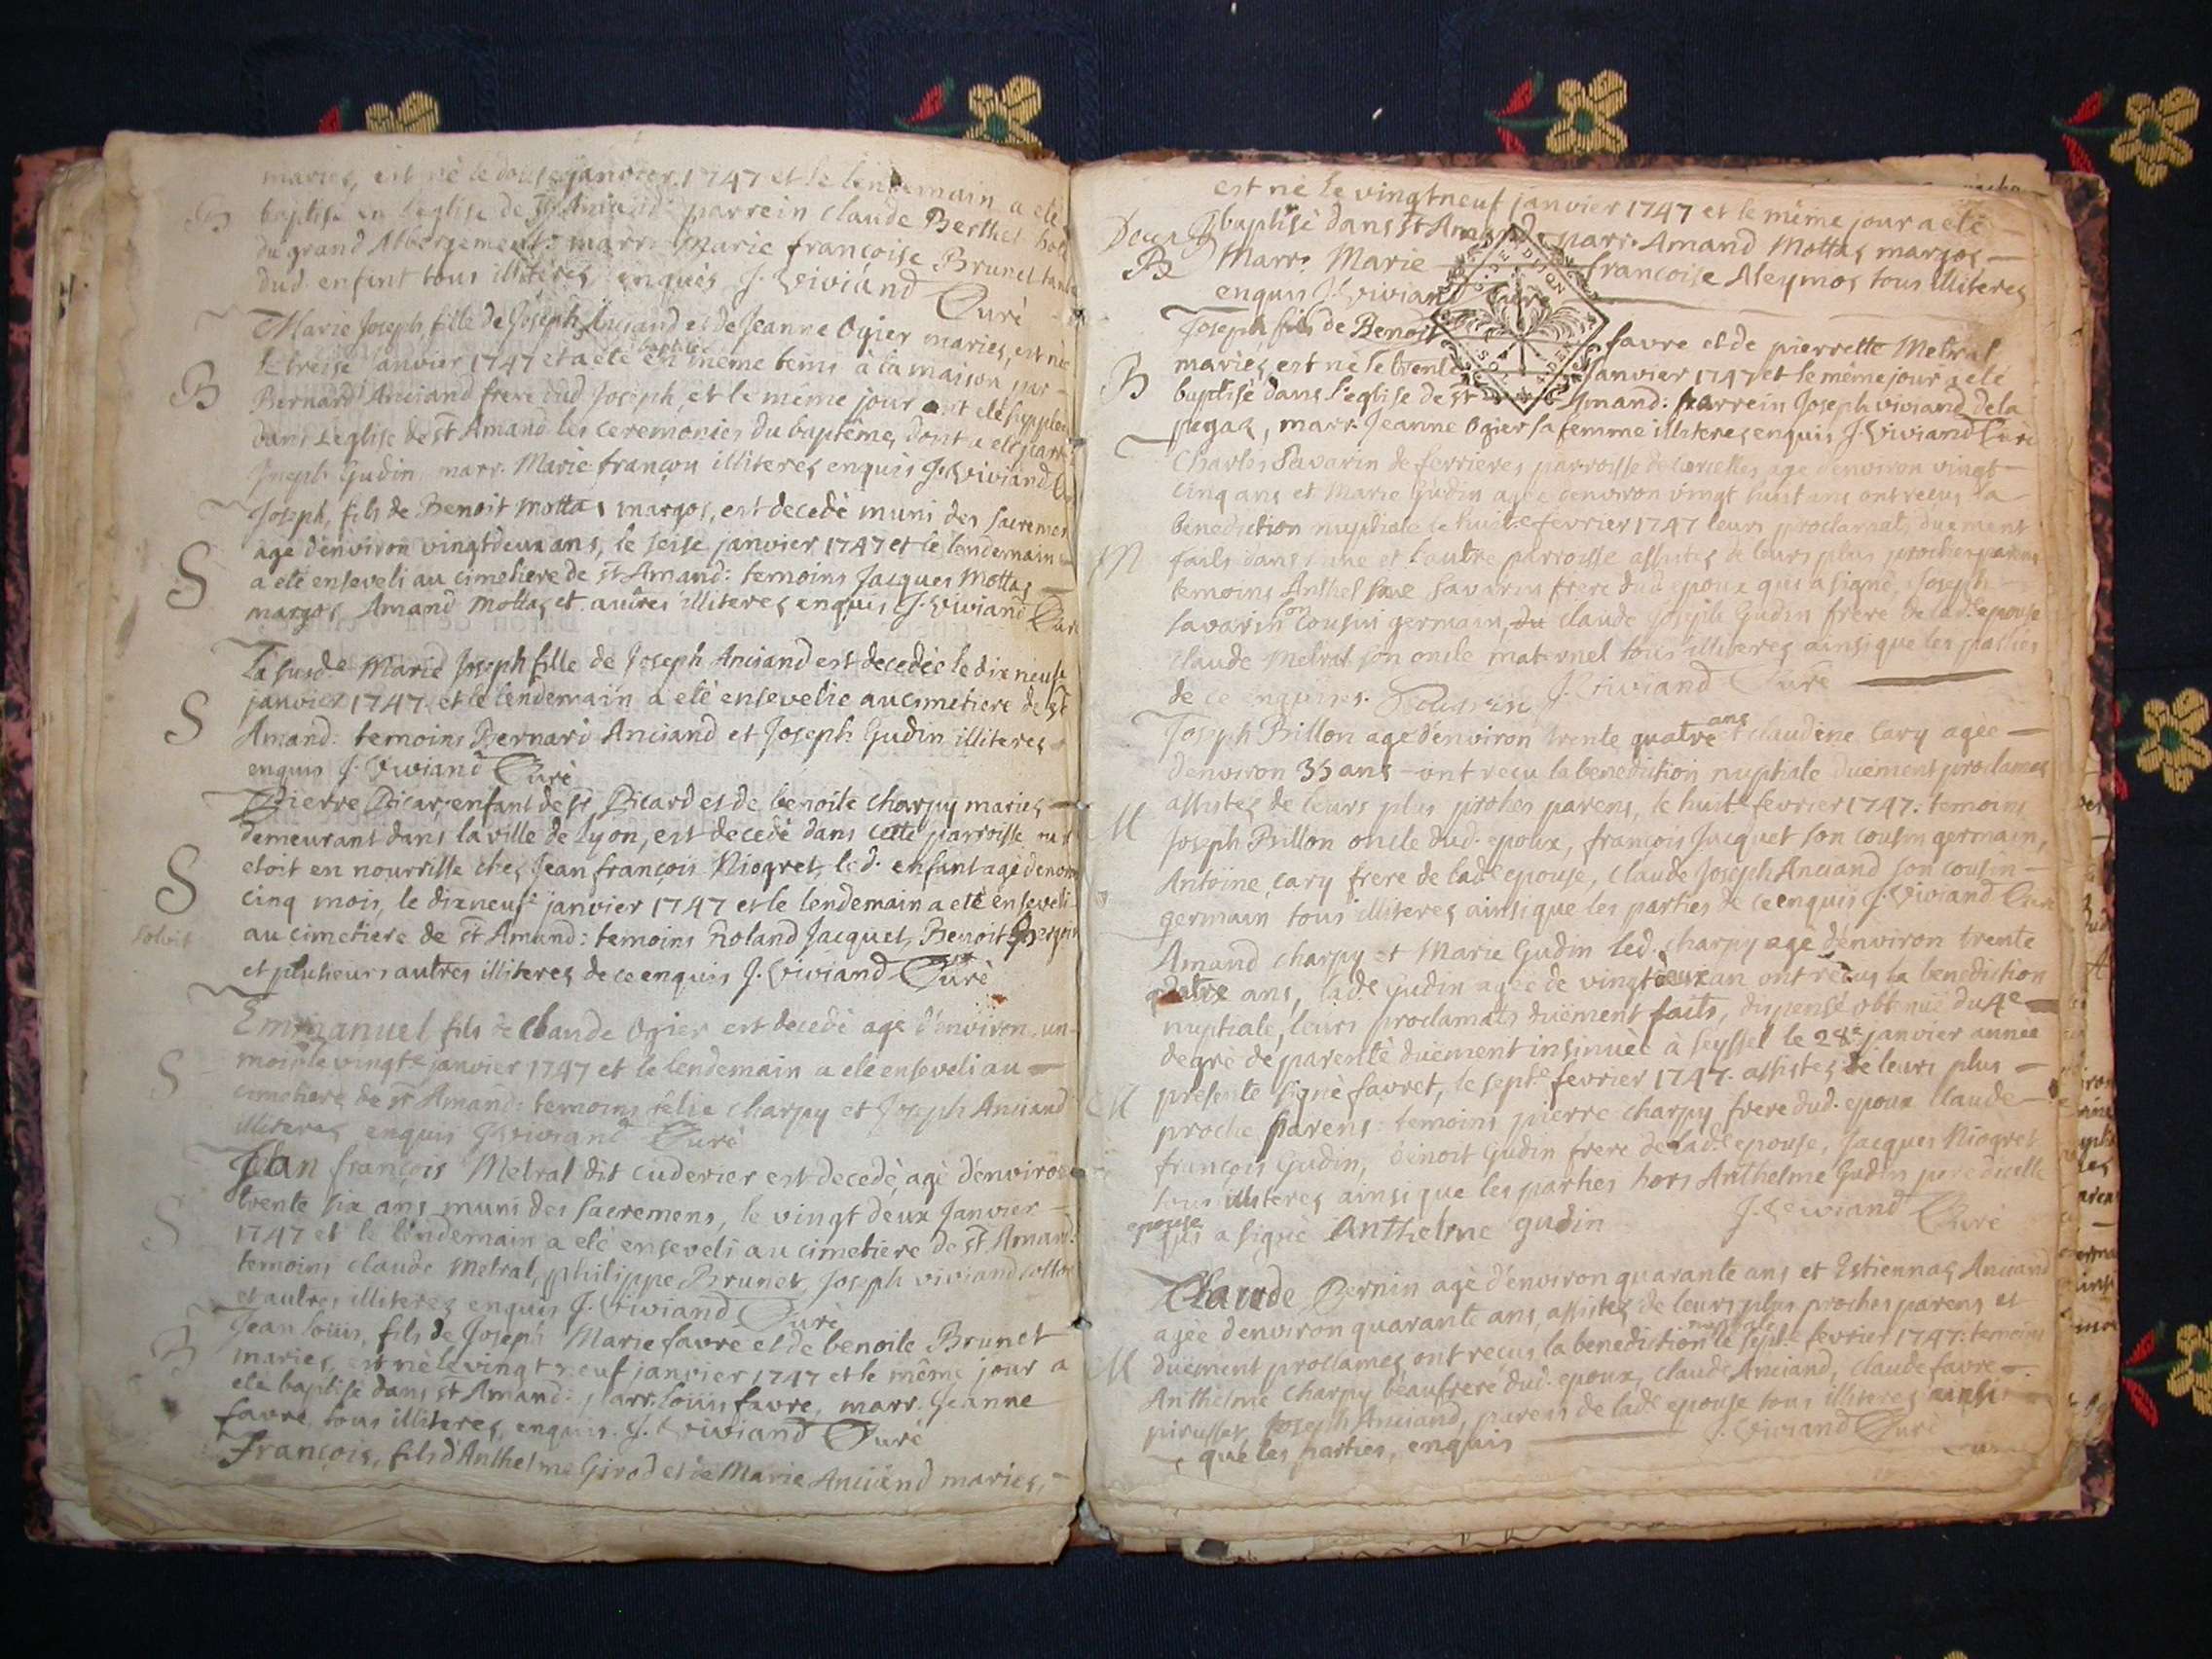 mariez, est né le douse janvier 1747 et le lendemain a eté
B
baptisé en l'eglise de St Amand parrein claude Berthet
du grand Abbergement: marr. Marie francoise Brunet tante
dud. enfant tous illiterez enquis J. Viviand Curé
Marie Joseph fille de Joseph Anciand et de Jeanne Ogier mariez, est née
le treise janvier 1747 et a eté baptisée en même tems à la maison par
B
Bernard Anciand frere dud Joseph, et le même jour ont eté supplées
dans l'eglise de st Amand les ceremonies du baptême, dont a eté parr.
Joseph Gudin, marr. Marie françon illiterez enquis J. Viviand
Joseph, fils de Benoit mottaz margos, est decedé muni des sacremes
agé d'environ vingtdeux ans, le seise janvier 1747 et le lendemain
S
a eté enseveli au cimetiere de st Amand: temoins Jacques Mottaz
margos Amand mottaz et autres illiterez enquis J. Viviand Curé
La susd.e Marie Joseph fille de Joseph Anciand est decedée le dixneufe
janvier 1747. et le lendemain a eté ensevelie au cimetiere de st
S
Amand: temoins Bernard Anciand et Joseph Gudin illiterez
enquis J. Viviand Curé
Pierre Picar, enfant de Sr Picard et de benoite charpy mariez
demeurant dans la ville de Lyon, est decedé dans cette parroisse
etoit en nourrisse chez Jean françois Niogret, led. enfant agé denviron
S
cinq mois, le dixneufe janvier 1747 et le lendemain a eté enseveli
solvit
au cimetiere de st Amand: temoins Roland Jacquet, Benoit
et plusieurs autres illiterez de ce enquis J. Viviand Curé
Emmanuel fils de Claude Ogier est decedé agé d'environ un
mois le vingte janvier 1747 et le lendemain a eté enseveli au
S
cimetiere de st Amand: temoins elie charpy et Joseph Anciand
illiterez enquis J. Viviand Curé
Jean françois Metral dit cuderier est decedé, agé d'environ
trente six ans, muni des sacremens, le vingt deux Janvier
S
1747 et le lendemain a eté enseveli au cimetiere de st Amand:
temoins claude Metral, philippe Brunet, Joseph viviand
et autres illiterez enquis J. Viviand Curé
Jean loüis, fils de Joseph Marie favre et de benoite Brunet
B
mariez, est né le vingt neuf janvier 1747 et le même jour a
eté baptisé dans st Amand: parr. loüis favre, marr. Jeanne
favre, tous illiterez, enquis. J. Viviand Curé
François, fils d'Anthelme Girod et de Marie Anciand mariez,
est né le vingtneuf janvier 1747 et le même jour a eté
baptisé dans st Amand parr. Amand Mottaz margos
B
Marr. Marie francoise Aleymoz tous illiterez
enquis J. Viviand Curé
Joseph, fils de Benoit favre et de pierrette Metral
mariez, est né le trente janvier 1747 et le même jour a eté
B
baptisé dans l'eglise de st Amand: parrein Joseph viviand dela
pegaz, marr. Jeanne Ogier sa femme illiterez enquis J. Viviand Curé
Charles Savarin de ferrieres parroisse de Corcelles, agé denviron vingt
cinq ans et Marie Gudin agée denviron vingt huit ans ont reçus la
benediction nuptiale le huite fevrier 1747 leurs proclamats duement
M
faits dans l'une et l'autre parroisse assistez de leurs plus proches parens
temoins Anthel Savarin frere dud epoux qui a signé, Joseph
savarin son cousin germain, du claude Joseph Gudin frere de lad.e epouse
claude Metral son oncle maternel tous illiterez ainsi que les parties
de ce enquises. J. Viviand Curé
Joseph Brillon agé d'environ trente quatre ans et claudine Cary agée
denviron 35 ans ont reçu la benediction nuptiale duement proclamez
M
assistez de leurs plus proches parens, le huite fevrier 1747: temoins
Joseph Brillon oncle dud. epoux, françois Jacquet son cousin germain,
Antoine cary frere de lad.e epouse, Claude Joseph Anciand son cousin
germain tous illiterez ainsi que les parties de ce enquis J. Viviand Curé
Amand charpy et Marie Gudin led. charpy agé d'environ trente
quatre ans, lad.e Gudin agée de vingtdeux an ont reçus la benediction
nuptiale, leurs proclamats duëment faits, dispense obtenue du 4e
degré de parenté duëment insinuée à Seyssel le 28e janvier année
M
presente signé favret, le septe fevrier 1747. assistez de leurs plus
proche parens: temoins pierre charpy frere dud. epoux Claude
françois Gudin, benoit Gudin frere de lad.e epouse, Jacques Niogret
tous illiterez ainsi que les parties hors Anthelme Gudin pere d'icelle
epouse
qui a signé Anthelme gudin J. Viviand Curé
Claude Pernin agé d'environ quarante ans et Estiennaz Anciand
agée d'environ quarante ans, assistez de leurs plus proches parens et
M
duëment proclamez ont reçus la benediction nuptiale le septe fevrier 1747: temoins
Anthelme Charpy beaufrere dud. epoux, claude Anciand, Claude favre
pirusset, Joseph Anciand, parens de lad.e epouse tous illiterez ainsi
que les parties, enquis J. Viviand Curé